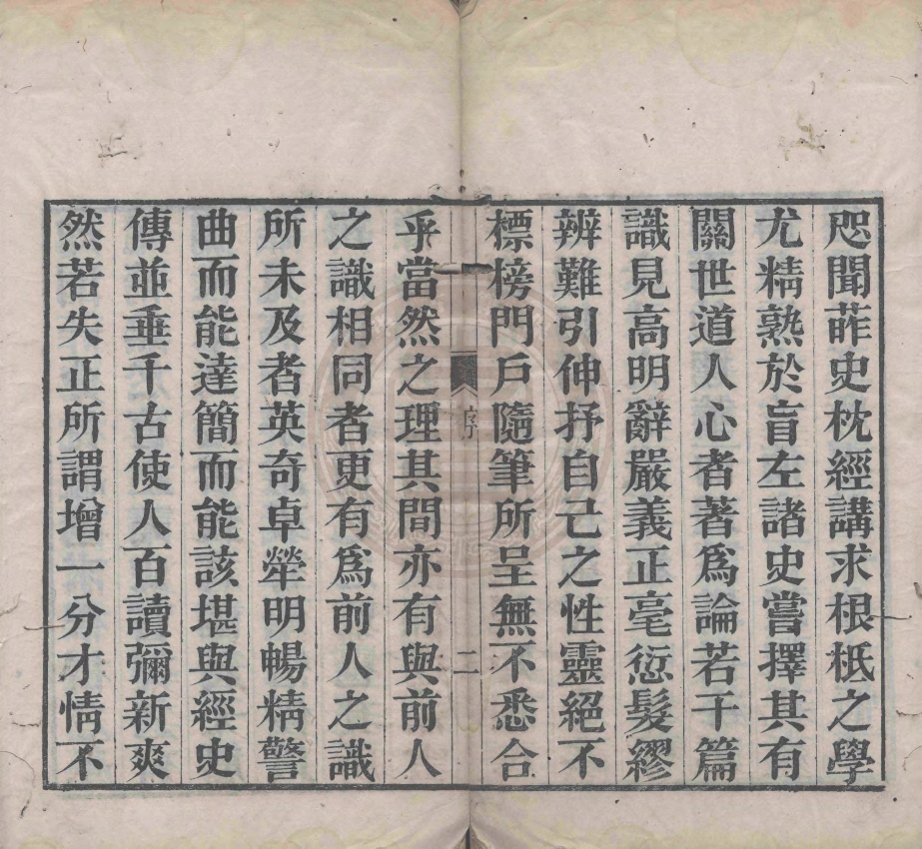 咫聞葄史枕經講求根柢之學
尤精熟於盲左諸史嘗擇其有
關世道人心者著爲論若干篇
識見高明辭嚴義正亳愆髮繆
辨難引伸抒自己之性靈絕不
標榜門戶隨筆所呈無不悉合
序
二
乎當然之理其間亦有與前人
之識相同者更有爲前人之識
所未及者英奇卓犖明暢精警
曲而能達簡而能該堪與經史
傳並垂千古使人百讀彌新爽
然若失正所謂增一分才情不